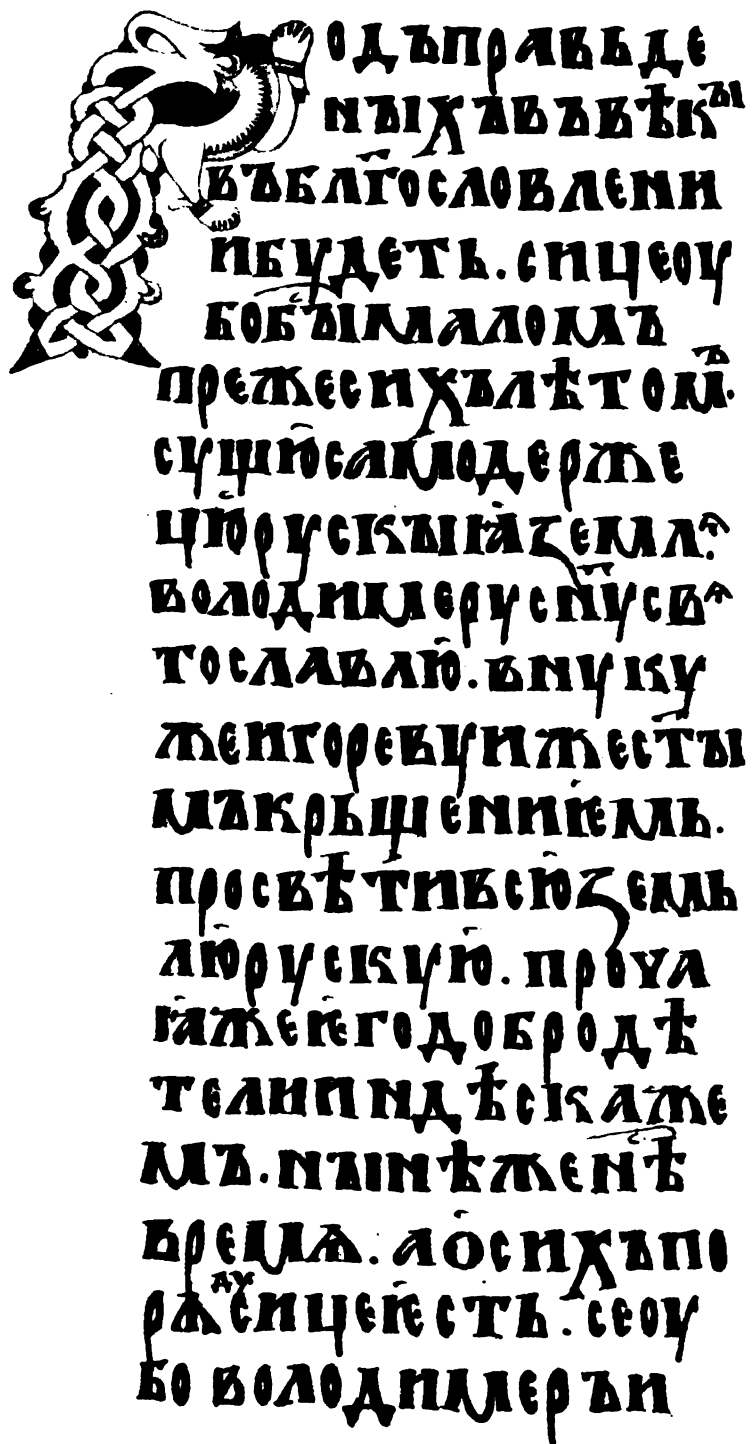 Родъправьде
ныхъвъвѣкꙑ
въбл҃гословлени
ибудеть.сицеоу
бобꙑⷭ҇маломъ
прежесихълѣтомъ.
сущюсамодерже
цюрускыꙗꙁемлѧ.
володимерусн҃усвѧ
тославлю.внуку
жеигоревуижест҃ы
мъкрьщениѥмь.
просвѣтивсюꙁемь
люрускую.проча
ꙗжеѥгодобродѣ
телииндѣскаже
мъ.нынѣженѣⷭ҇
времѧ.аосихъпо
рѧдусицеѥсть.сеоу
боволодимеръи